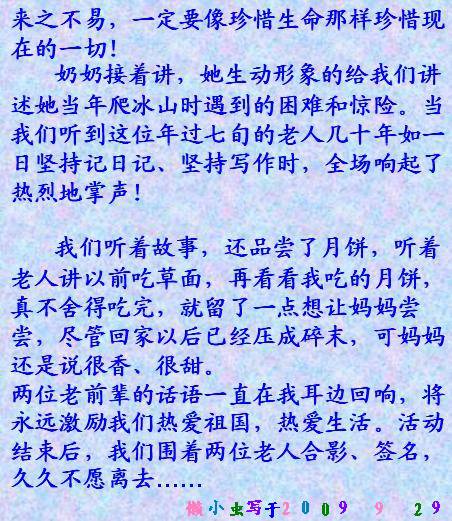 来之不易，一定要像珍惜生命那样珍惜现
在的一切！
奶奶接着讲，她生动形象的给我们讲
述她当年爬冰山时遇到的困难和惊险。当
我们听到这位年过七旬的老人几十年如一
日坚持记日记、坚持写作时，全场响起了
热烈地掌声！
我们听着故事，还品尝了月饼，听着
老人讲以前吃草面，再看看我吃的月饼，
真不舍得吃完，就留了一点想让妈妈尝
尝，尽管回家以后已经压成碎末，可妈妈
还是说很香、很甜。
两位老前辈的话语一直在我耳边回响，将
永远激励我们热爱祖国，热爱生活。活动
结束后，我们围着两位老人合影、签名，
久久不愿离去……
懒小虫写于2009 9 29